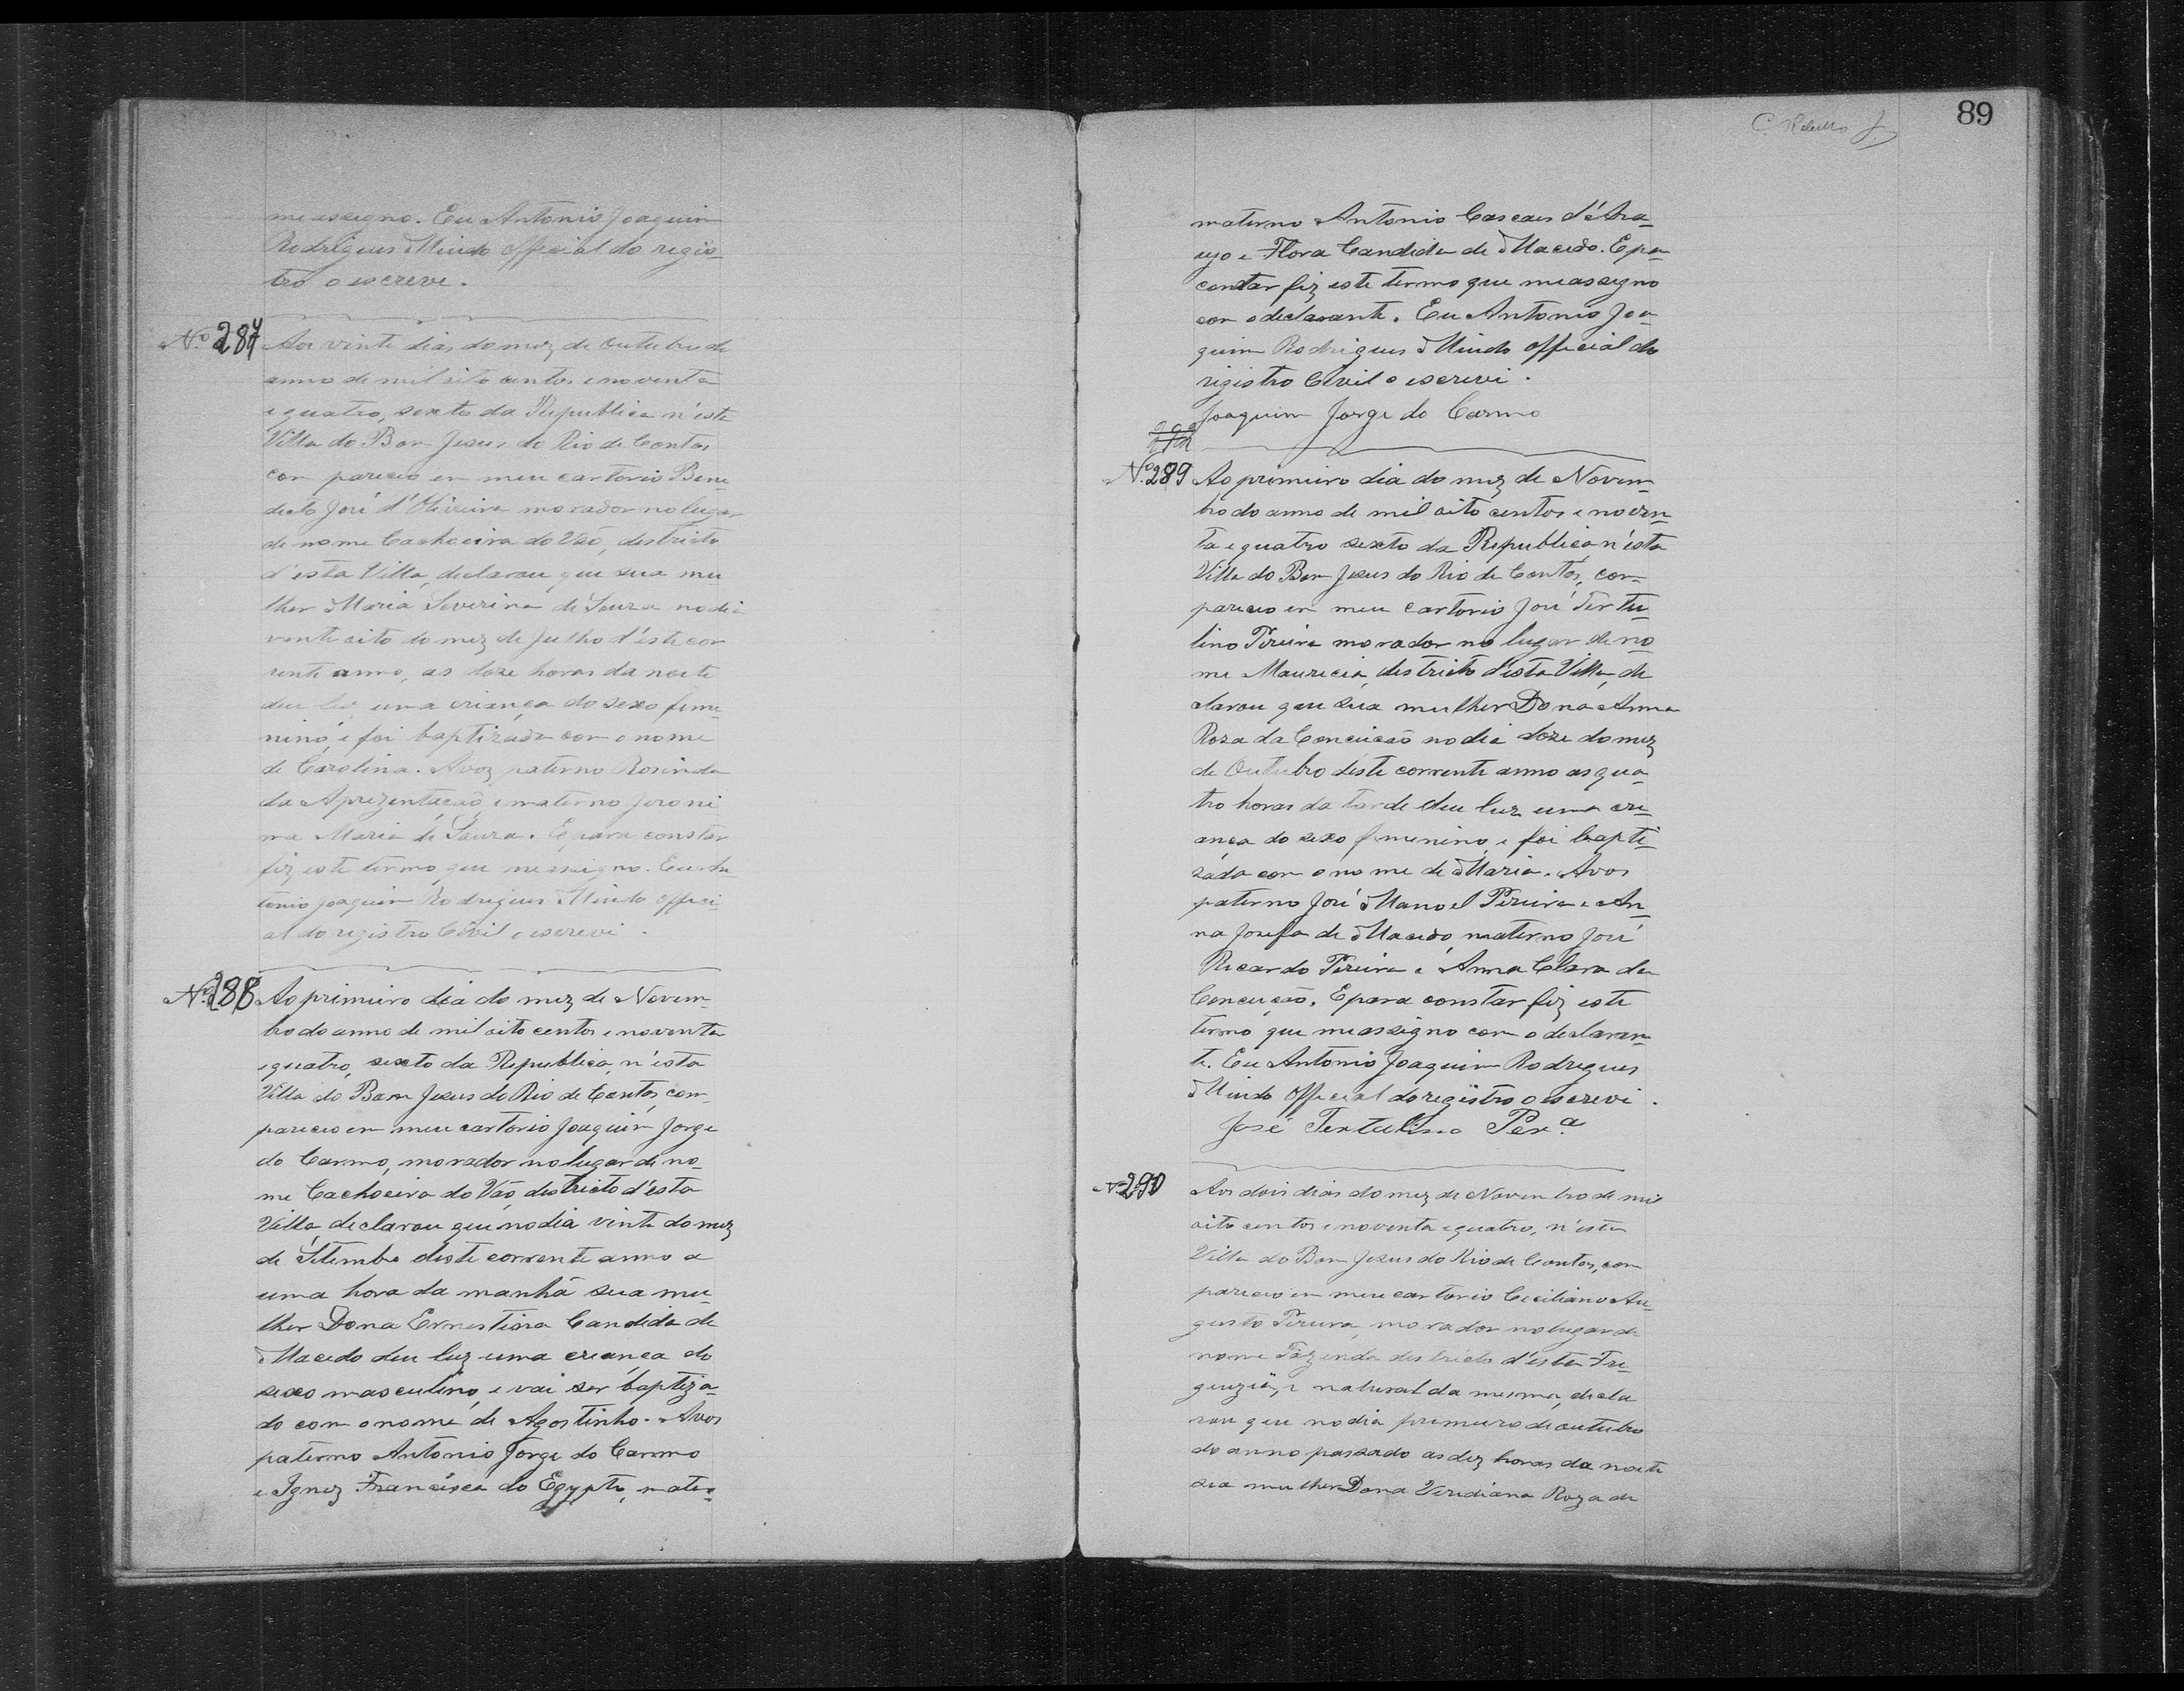 me assigno. Eu Antonio Joaquim
Rodrigues Mindo official do regis-
tro o escrevi.
Nº 287 Aos vinte dias do mez de Outubro do
anno de mil oito centos e noventa
e quatro, sexto da Republica n'esta
Villa do Bom Jesus do Rio de Contas
com pareceo em meu cartorio Bene
dicto José d'Oliveira morador no lugar
de nome Cachoeira do Vão, destricto
d'esta Villa, declarou que sua mu
lher Maria Severina de Souza no dia
vinte oito do mez de Julho d'este cor
rente anno, as doze horas da noite
deu luz uma criança do sexo feme
nino, e foi baptizada com o nome
de Carolina. Avoz paterno Rosinda
da Aprezentação e materno Jeroni
ma Maria de Souza. E para constar
fiz este termo que me assigno. Eu An
tonio Joaquim Rodrigues Mindo offici
al do registro Civil o escrevi.
Nº 288 Ao primeiro dia do mez de Novem-
bro do anno de mil oito centos e noventa
e quatro, sexto da Republica, n'esta
Villa do Bom Jesus do Rio de Contas, com
pareceo em meu cartorio Joaquim Jorge
do Carmo, morador no lugar de no-
me Cachoeira do Vão, destricto d'esta
Villa, declarou que no dia vinte do mez
de Setembro deste corrente anno a
uma hora da manhã sua mu-
lher Dona Ernestina Candida de
Macedo deu luz uma creança do
sexo masculino, e vai ser baptiza-
do com o nome de Agostinho. Avos
paterno Antonio Jorge do Carmo
e Ignez Francisca do Egypto, mater-
89
materno Antonio Cascaes d'Ara-
ujo e Flora Candida de Macedo. E pa
constar fiz este termo que me assigno
com o declarante. Eu Antonio Joa-
quim Rodrigues Mindo official do
rigistro Civil o escrevi.
Joaquim Jorge do Carmo
Nº 289 Ao primeiro dia do mez de Novem-
bro do anno de mil oito centos e noven-
ta e quatro sexto da Republica, n'esta
Villa do Bom Jesus do Rio de Contas, com-
pareceo em meu cartorio José Tertu-
lino Pereira morador no lugar de no
me Mauricia, destricto d'esta Villa, de
clarou que sua mulher Dona Anna
Roza da Conceicão no dia doze do mez
de Outubro deste corrente anno as qua-
tro horas da tarde deu luz uma cri-
ança do sexo femenino, e foi bapti-
zada com o nome de Maria. Avos
paterno José Manoel Pereira e An-
na Josefa de Macedo, materno José
Ricardo Pereira e Anna Clara da
Conceição. E para constar fiz este
termo que me assigno com o declaran-
te. Eu Antonio Joaquim Rodrigues
Mindo official do registro o escrevi.
José Tertulino Perª
Nº 290 Aos dois dias do mez de Novembro de mil
oito centos e noventa e quatro, n'esta
Villa do Bom Jesus do Rio de Contas, com
pareceo em meu cartorio Ceciliano Au-
gusto Pereira, morador no lugar de
nome Fazenda destricto d'esta Fre-
guezia, e natural da mesma, decla
rou que no dia primeiro de outubro
do anno passado as dez horas da noite
sua mulher Dona Veridiana Roza de